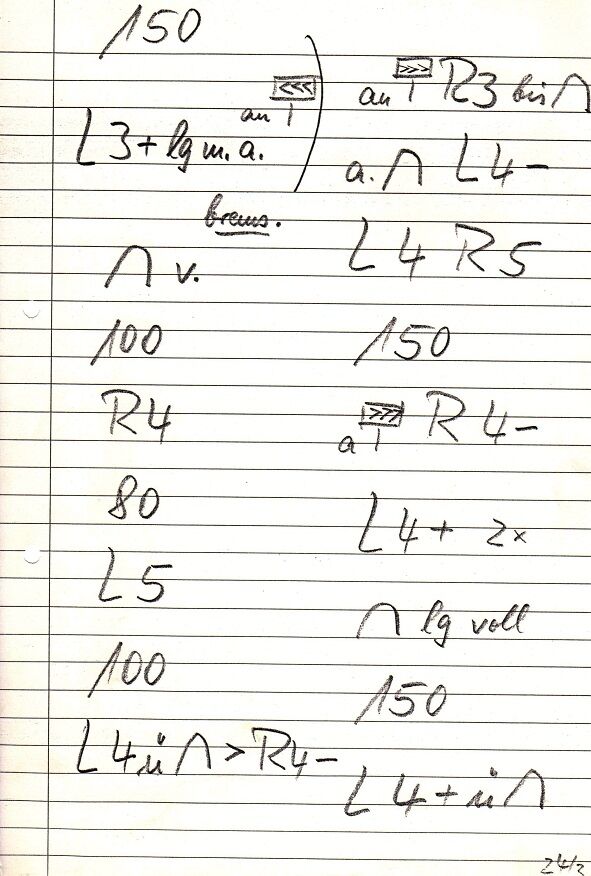 150
an <<<
L3+ lg m. a.
brems.
∩ v.
100
R4
80
L5
100
L4 ü ∩ > R4-
an >>> R3 bis ∩
a. ∩ L4-
L4 R5
150
a >>> R4-
L4+ 2x
∩ lg voll
150
L4+ ü ∩
24/2